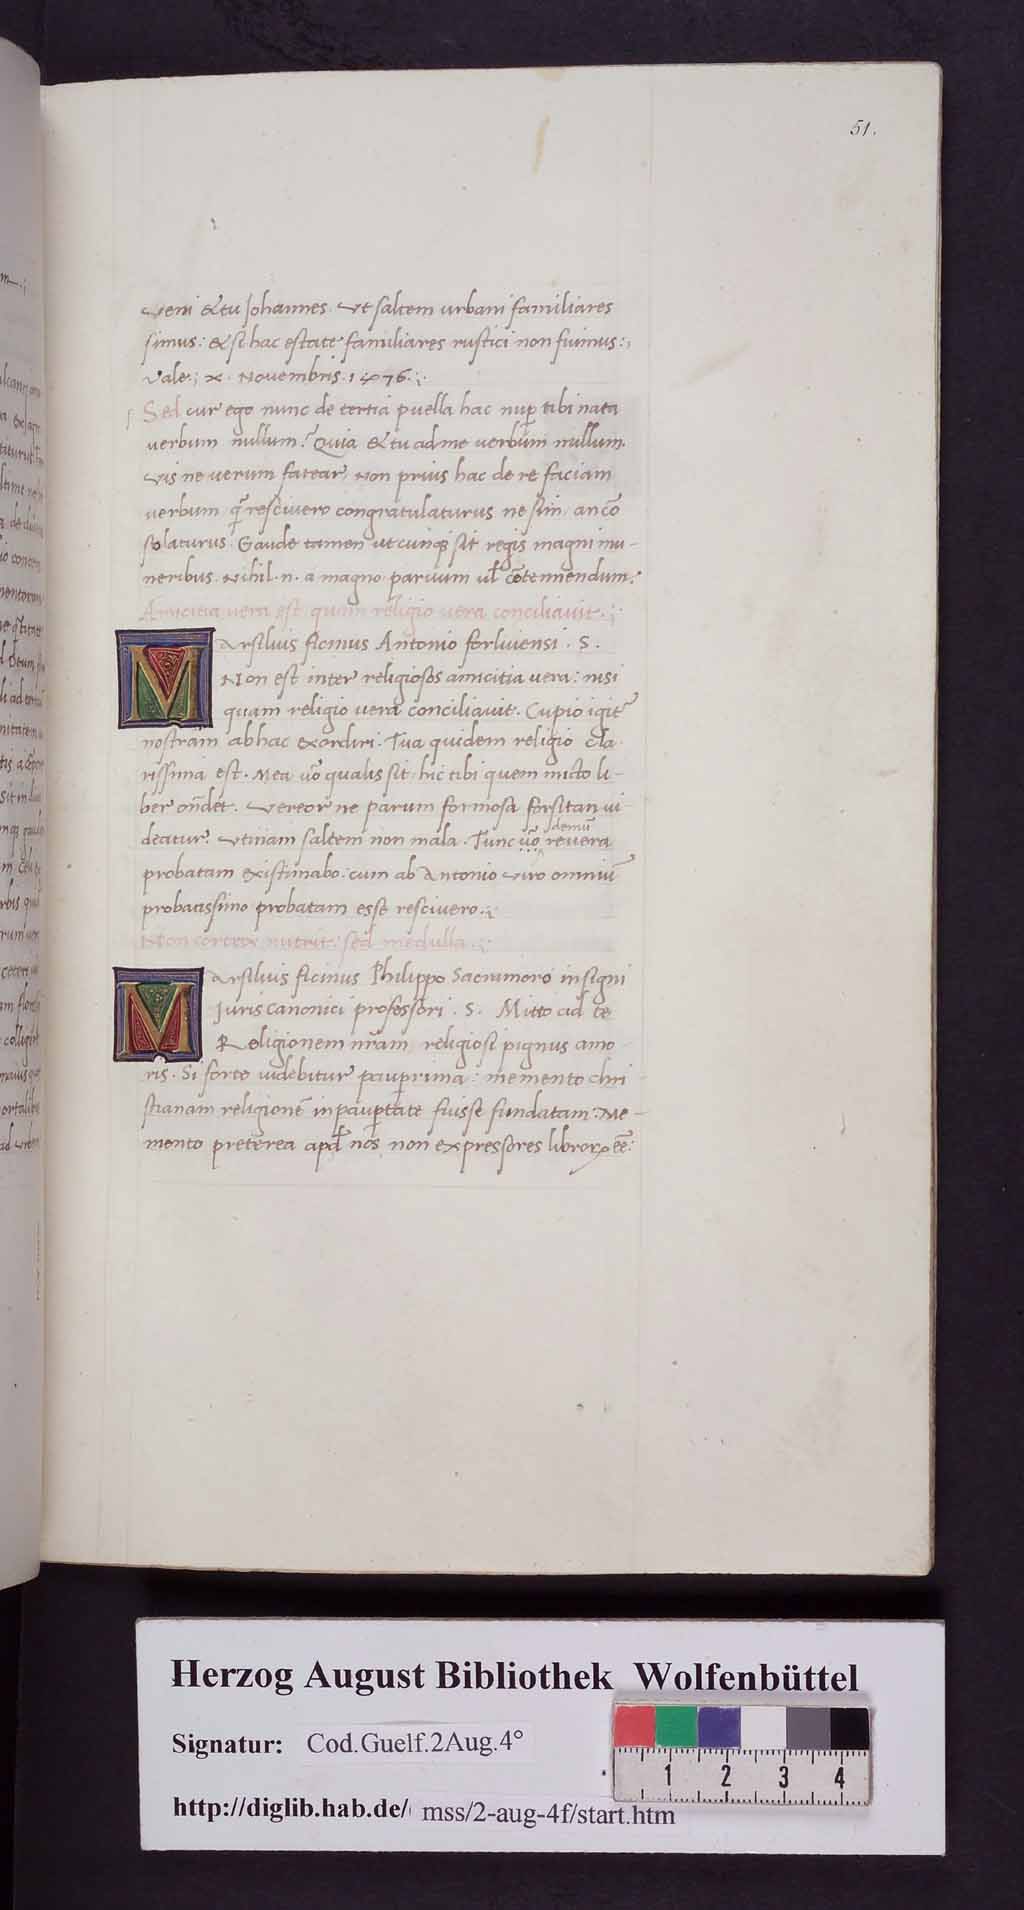 51.
Veni & tu Johannes. Vt saltem urbani familiares
simus: & si hac estate familiares rustici non fuimus:,
Vale; x. Novembris. 1476.;
Sed cur ego nunc de tertia puella hac nup̱ tibi nata
verbum nullum? Quia & tu ad me verbum nullum.
Vis ne verum fatear, Non prius hac de re faciam
verbum q̃ rescivero congratulaturus ne sim an cõ
solaturus. Gaude tamen utcunq; sit regis magni mu-
neribus. Nihil .n. a magno parvum ul̃ cõtemnendum;
Amicitia vera est quam religio vera conciliavit.;
Marsilius ficinus Antonio forliviensi . S.
Non est inter religiosos amicitia vera: nisi
quam religio vera conciliavit. Cupio igit᷑
nostram ab hac exordiri. Tua quidem religio cla
rissima est. Mea ṽo qualis sit hic tibi quem micto li-
ber oñdet. Vereor ne parum formosa forsitan vi-
demũ
deatur. Vtinam saltem non mala. Tunc ṽo revera
probatam existimabo: cum ab Antonio viro omniũ
probatissimo probatam esse rescivero.;
Non cortex nutrit: sed medulla.;
Marsilius ficinus Philippo Sacramoro insigni
Juris canonici professori . S. Mitto ad te
Religionem nr̃am religiosi pignus amo
ris. Si forte videbitur paup̱rima: memento chri
stianam religionẽ in paup̱tate fuisse fundatam. Me-
mento preterea apd̃ nos non expressores libroꝝ eẽ:
Herzog August Bibliothek Wolfenbüttel
Signatur: Cod.Guelf.2Aug.4°
http://diglib.hab.de/ mss/2-aug-4f/start.htm
1 2 3 4